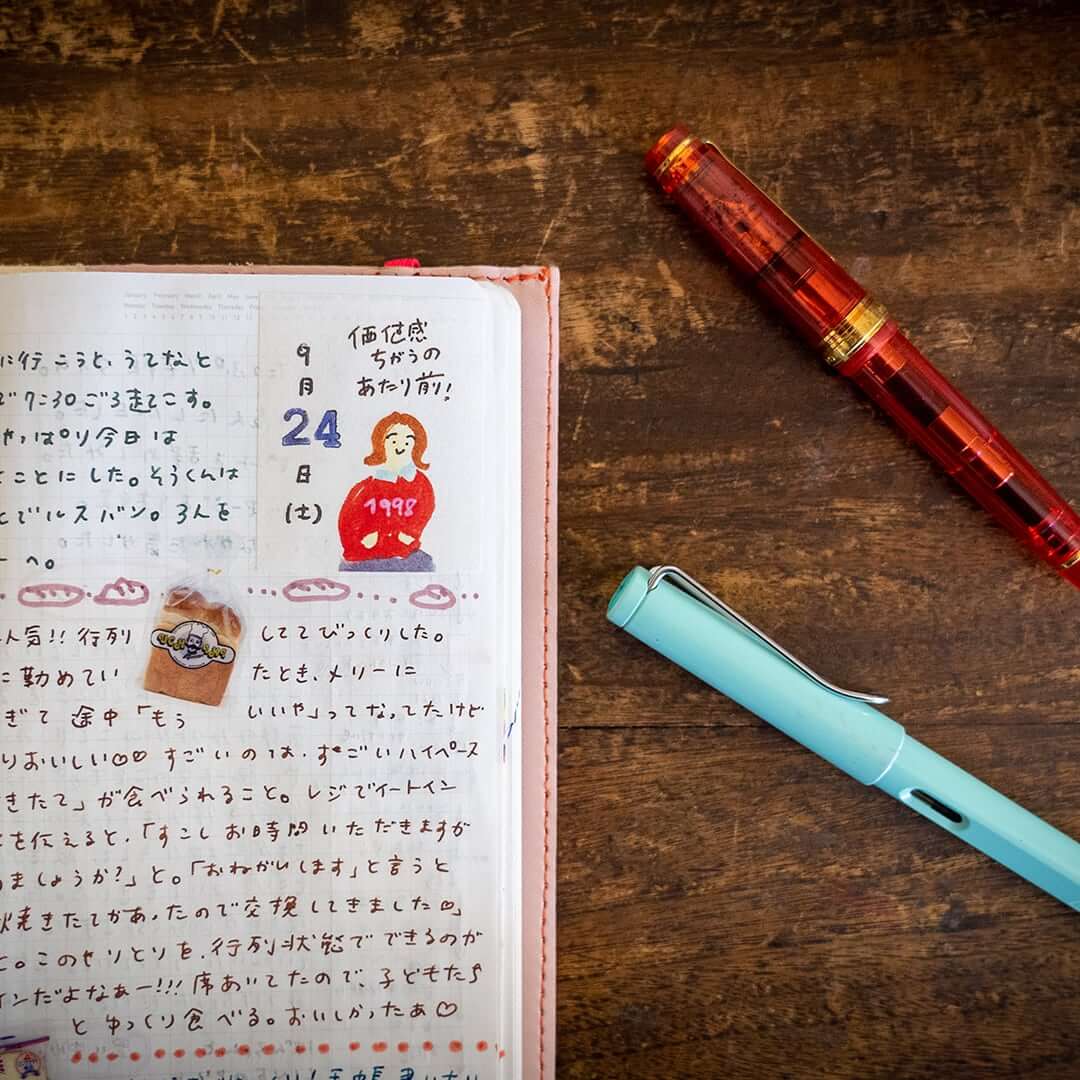 January February March April May June
Monday Tuesday Wednesday Thursday
1 2 3 4 5 6 7 8 9 10 11 12 13
に行こうと、うてなと
で7:30ごろ起こす。
やっぱり今日は
とことにした。そうくんは
とでルスバン。3人を
ーへ。
9
月
24
日
(土)
価値感
ちがうの
あたり前!
1998
人気!!行列
しててびっくりした。
に勤めてい
たとき、メリーに
ぎて途中「もう
いいや」ってなってたけど
りおいしい♡♡すごいのは、すごいハイペース
きたて」が食べられること。レジでイートイン
を伝えると、「すこしお時間いただきますが
ましょうか?」と。「おねがいします」と言うと
焼きたてがあったので交換してきました♡」
と。このやりとりを、行列状態でできるのが
インだよなあー!!!席あいてたので、子どもたち
とゆっくり食べる。おいしかったあ♡